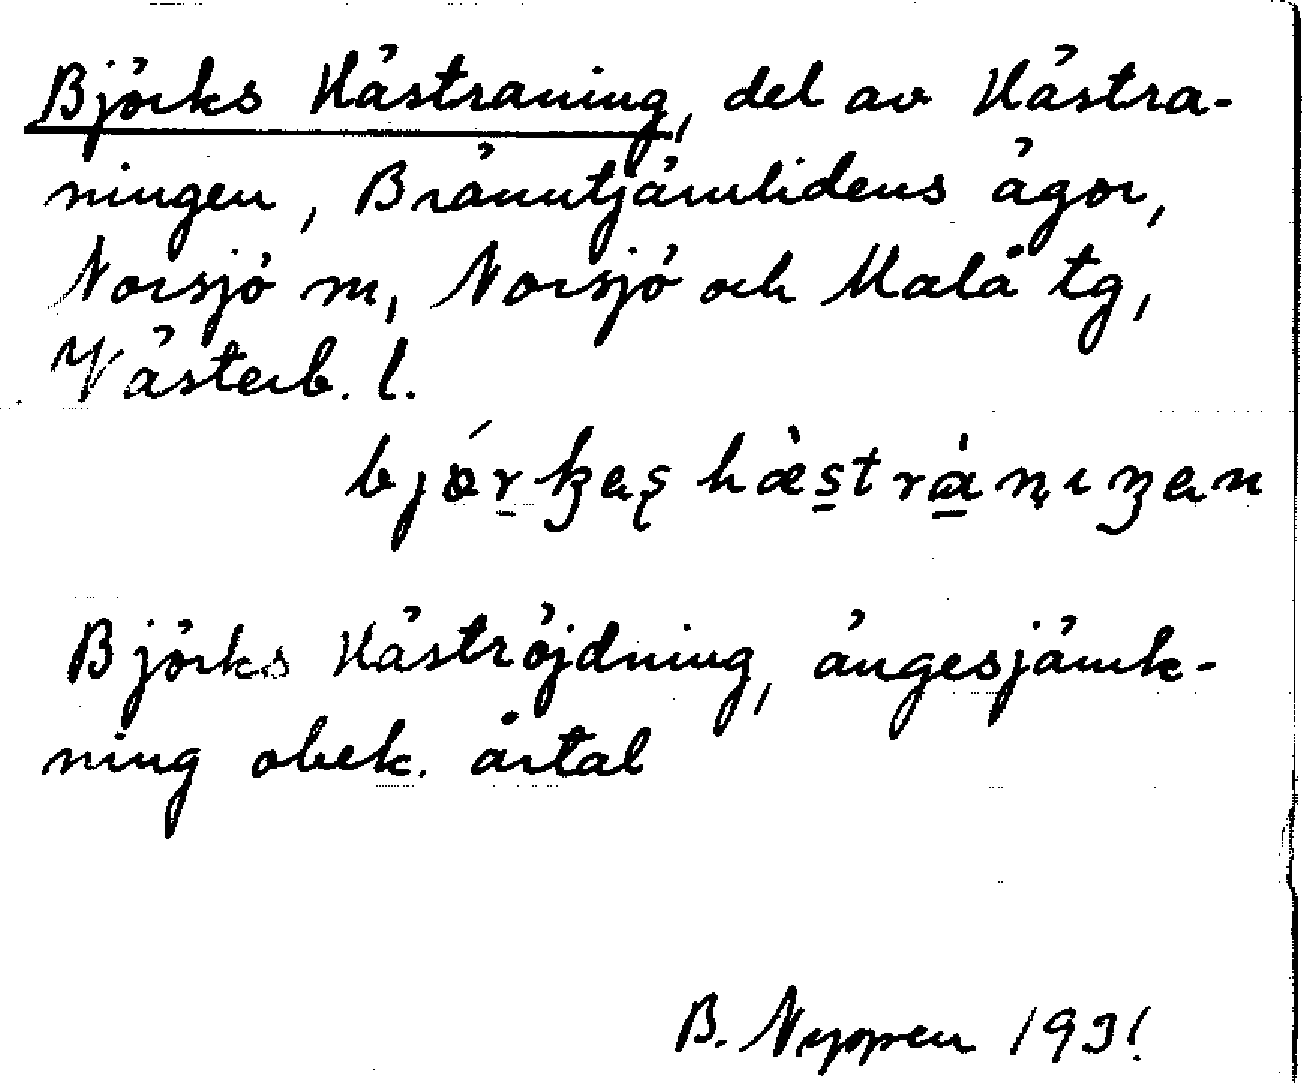 Björks Hästraning, del av Hästra-
ningen, Bränntjärnlidens ägor,
Norsjö m, Norsjö och Malå tg,
Västerb. l.
Björks Häströjdning, ängesjämk-
ning obek. årtal
B. Nyppen 1931.